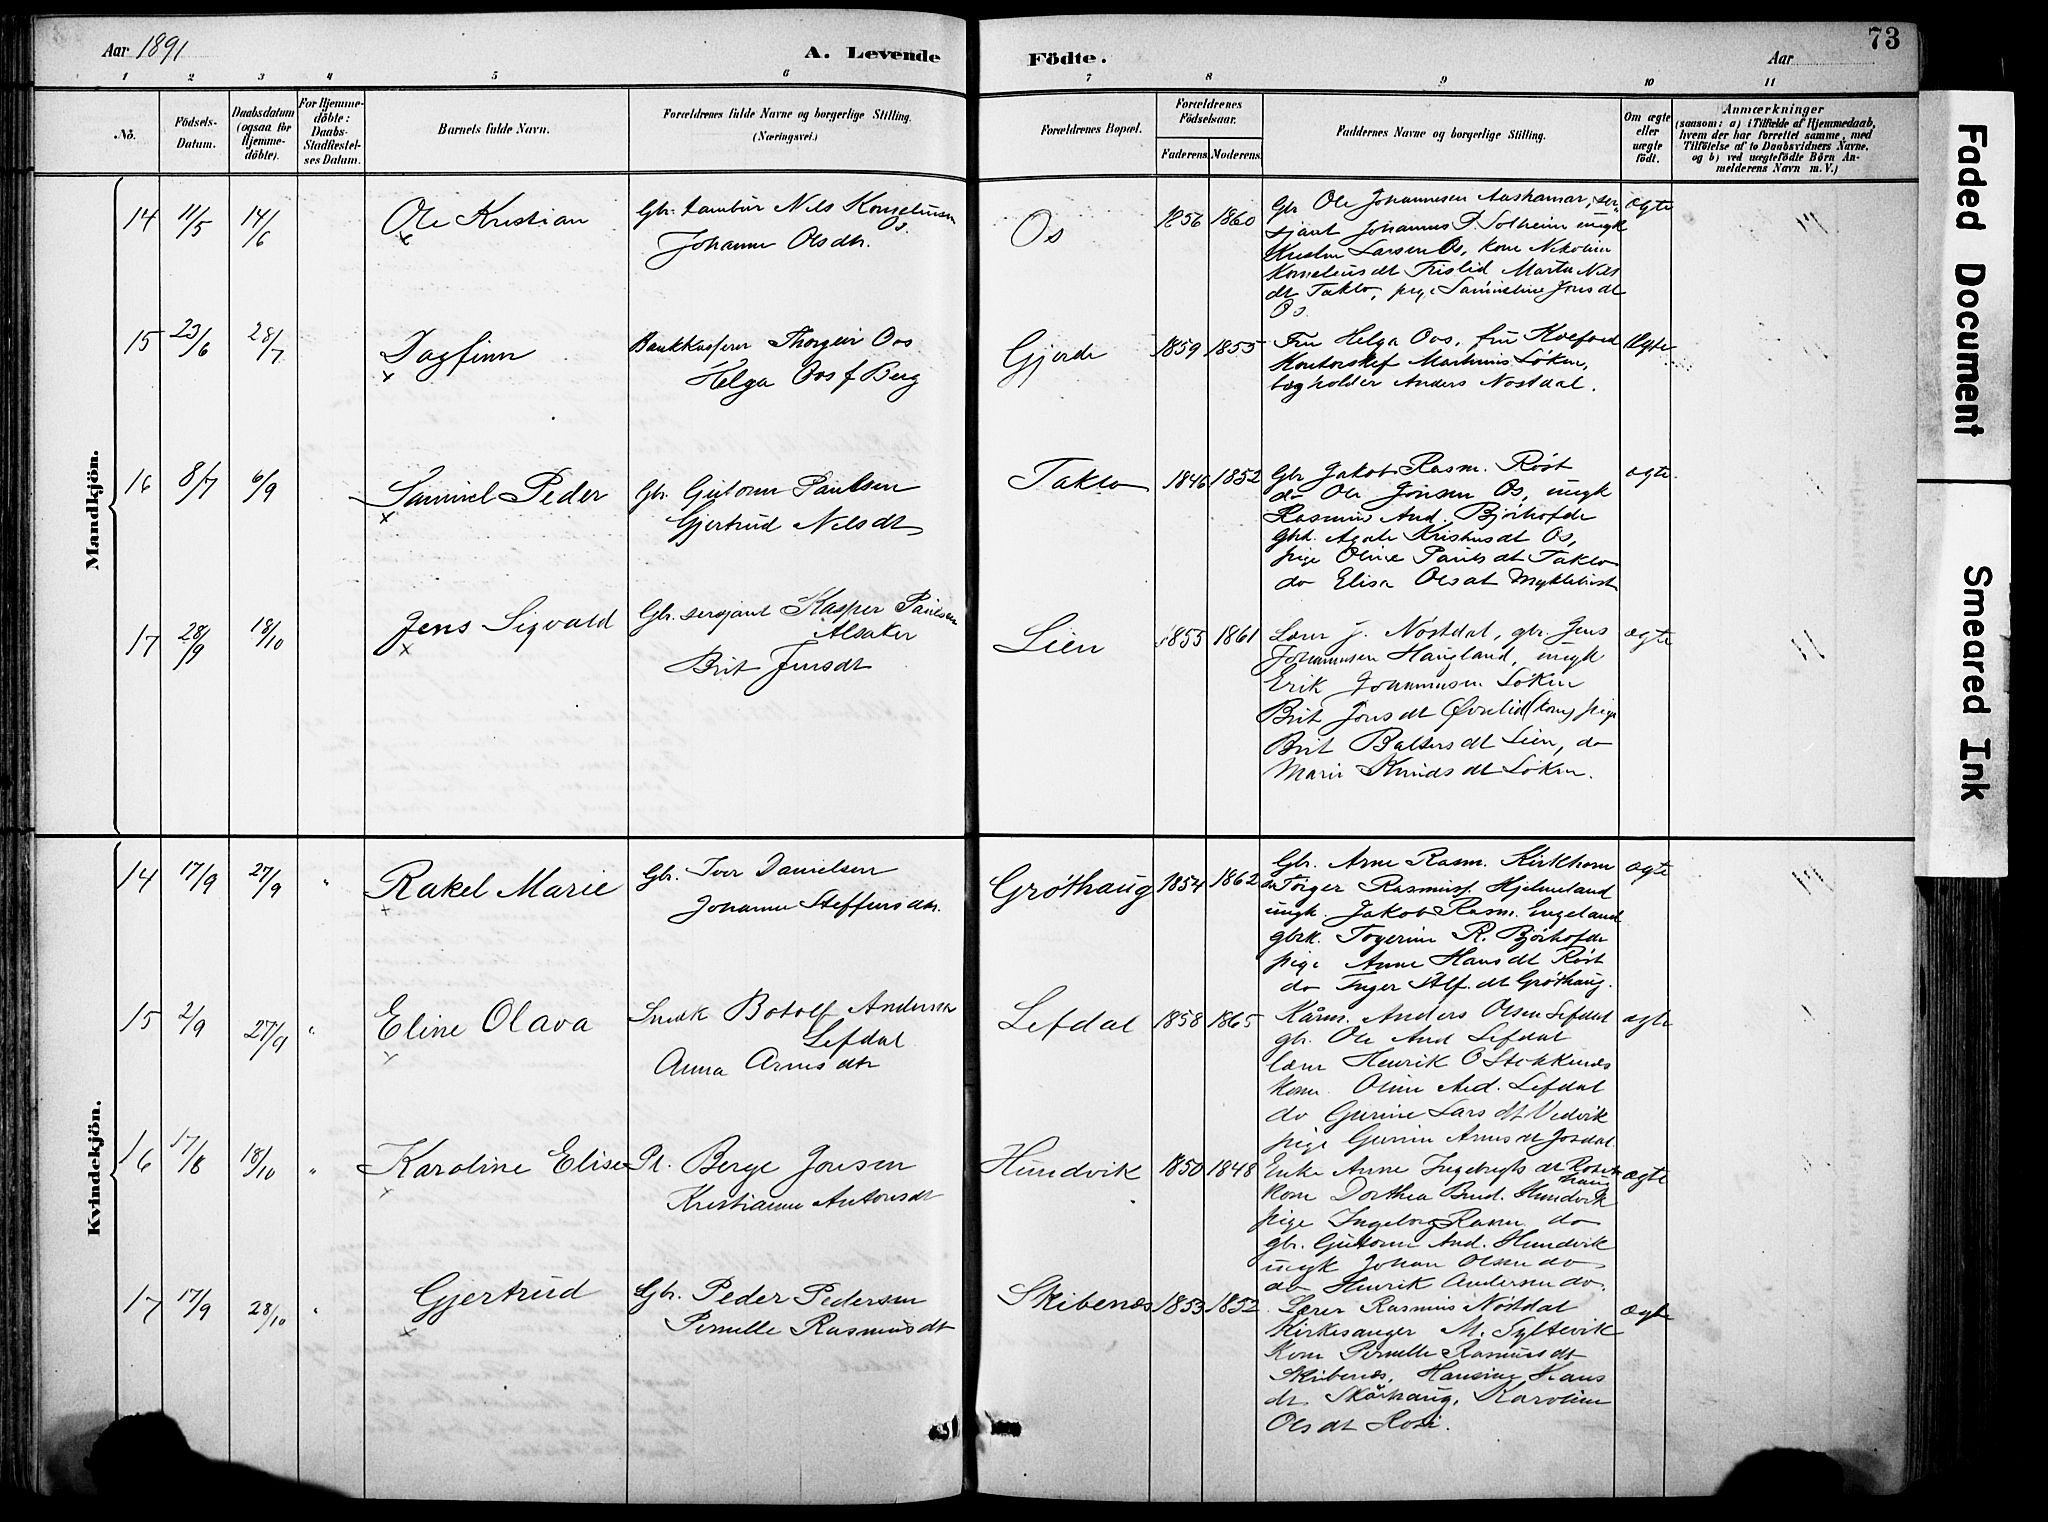 Aar 1891
A. Levende Födte.
Aar
73
1 2 3 4 5 6 7 8 9 10 11
No.
Födsels-Datum.
Daabsdatum (ogsaa for Hjemme-döbte).
For Hjemme-döbte: Daabs-Stadfæstel-ses Datum.
Barnets fulde Navn.
Forældrenes fulde Navne og borgerlige Stilling.
(Næringsvei.)
Forældrenes Bopæl.
Forældrenes Födselsaar.
Faderens. Moderens.
Faddernes Navne og borgerlige Stilling.
Om ægte eller uægte födt.
Anmærkninger
(saasom: a) i Tilfælde af Hjemmedaab,
hvem der har forrettet samme, med
Tilföielse af to Daabsvidners Navne.
og b) ved uægtefödte Börn An-
melderens Navn m. V.)
Mandkjön.
14 11/5 14/6 Ole Kristian Gbr. tambur Nils Korneliusen Os.
Johanne Olsdtr.
Os 1856 1860
Gbr Ole Johannesen Aashamar, ser-
sjant Johannes P. Solheim ungk
Larsen Os, kone Nikoline
Korneliusdt Trislid Marta Nils
dt Taklo, pige Jonsdt
Os.
ægte
15 23/6 28/7 Dagfinn Bankkasserer Thorgeir Oos
Helga Oos f Berg
Gjerde 1859 1855
Fru Helga Oos, fru Koefoed
Kontorchef Martinus Løken,
bogholder Anders Nostdal.
Ægte
16 8/7 6/9 Samuel Peder Gbr. Guttorm Paulsen
Gjertrud Nilsdt
Taklo 1846 1852
Gbr Jakob Rasm. Røst
do Ole Jonsen Os, ungk
Rasmus And. Bjørhofde
gbk. Agate Kristensdt Os,
pige Oline Paulsdt Taklo
do Elisa Olsdt Myklebust
ægte
17 28/9 18/10 Jens Sigvald Gbr. sersjant Kasper Paulsen
Alsaker
Brit Jensdt
Lien 1855 1861
Lærer J. Nostdal, gbr. Jens
Johannesen Haugland, ungk
Erik Johannesen Løken
Brit Jonsdt Øvrelid (kone) pige
Brit Baltersdt Lien, do
Marie Knudsdt Løken.
ægte
Kvindekjön.
14 17/9 27/9 " Rakel Marie Gbr. Iver Danielsen
Johanne Steffensdtr.
Grøthaug 1854 1862
Gbr. Arne Rasm. Kirkhorn
do Torger Rasmuss. Hjelmeland
ungk. Jakob Rasm. Engeland
gbrk. Togerine R. Bjørhofde
pige Anne Hansdt Røst
do Inger Stef.dt Grøthaug.
ægte
15 2/9 27/9 " Eline Olava Snedk Botolf Andersen
Lefdal
Anna Arnesdtr
Lefdal 1858 1865
Kårm. Anders Olsen Lefdal
gbr. Ole And Lefdal
lærer Henrik O Stokkenes
kone Oline And. Lefdal
do Gurine Larsdt Vedvik
pige Gurine Arnesdt Josdal
ægte
16 17/8 18/10 " Karoline Elise Pl. Berge Jonsen
Kristianne Antonsdt
Hundvik 1850 1848
Enke Anne Ingebrigtsdt
kone Dorthea Bend. Hundvik
pige Ingeborg Rasm. do
gbr. Guttorm And. Hundvik
ungk Johan Olsen do
do Henrik Andersen do.
ægte
17 17/9 28/10 " Gjertrud Gbr. Peder Pedersen
Pernille Rasmusdt
Skibenes 1853 1852
Lærer Rasmus Nostdal
Kirkesanger M. Syltevik
kone Pernille Rasmusdt
Skibenes, Hansine Hans
dt Skårhaug, Karoline
Olsdt Rosi.
ægte
Faded Document
Smeared Ink